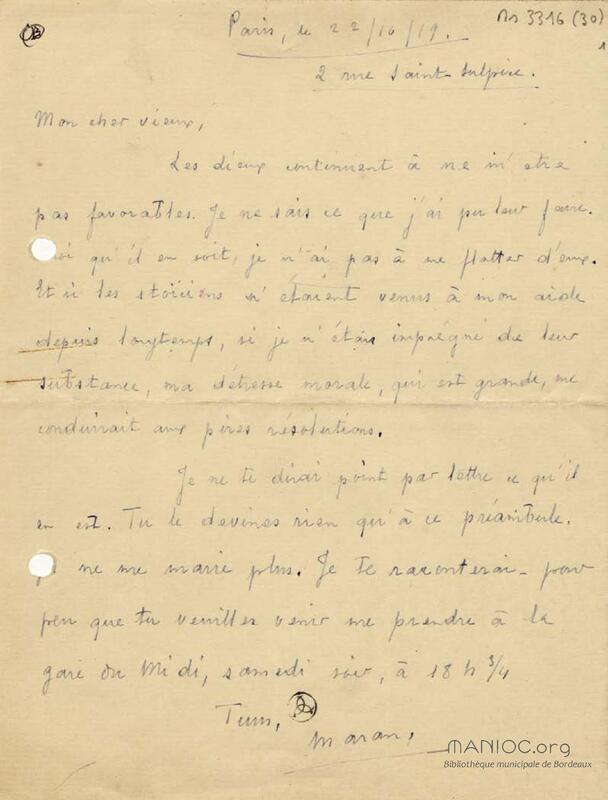 Ms 3316 (30)
Paris, le 22/10/19.
2 rue Saint-Sulpice.
Mon cher vieux,
Les dieux continuent à ne m'etre
pas favorables. Je ne sais ce que j'ai pu leur faire.
oi qu'il en soit, je n'ai pas à me flatter d'eux.
Et si les stoïciens n'étaient venus à mon aide
depuis longtemps, si je n'étais imprégné de leur
substance, ma détresse morale, qui est grande, me
conduirait aux pires résolutions.
Je ne te dirai point par lettre ce qu'il
en est. Tu le devines rien qu'à ce préambule.
ne me marie plus. Je te raconterai - pour
peu que tu veuilles venir me prendre à la
gare du Midi, samedi soir, à 18 h 3/4
Tuus,
Maran.
MANIOC.org
Bibliothèque municipale de Bordeaux